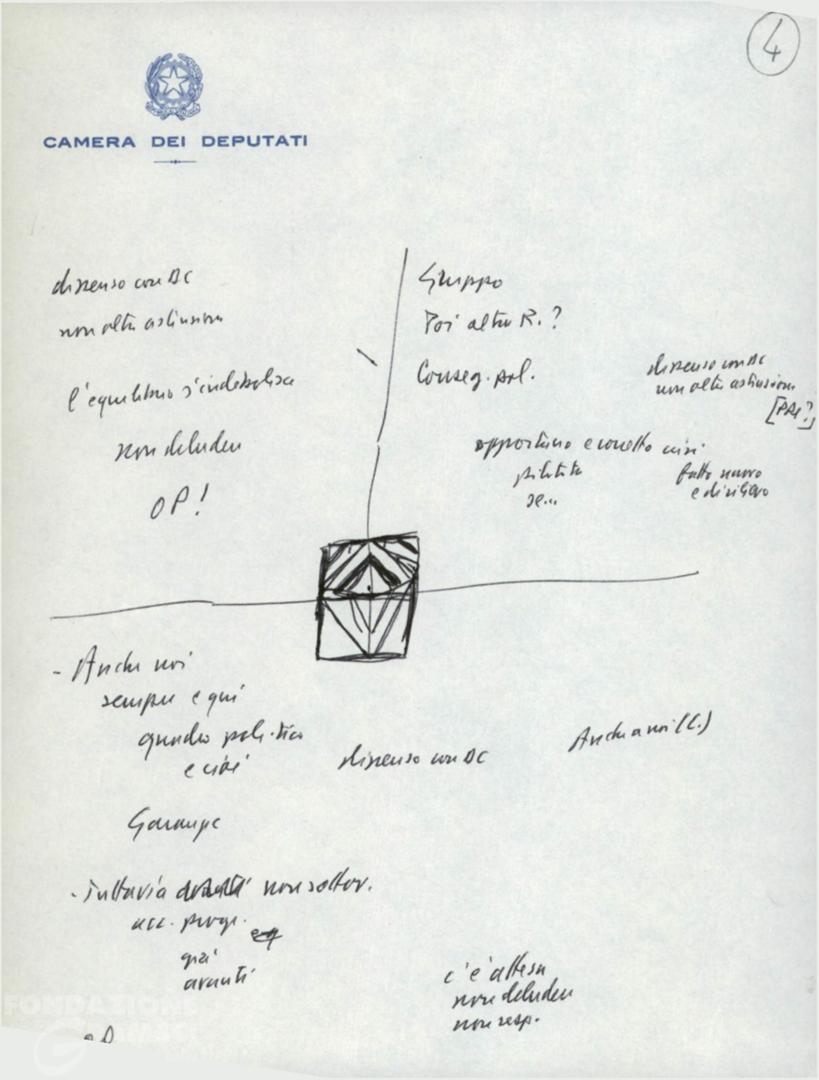 4
CAMERA DEI DEPUTATI
dissenso con DC
non altra astensione
l'equilibrio s'indebolisce
non deludere
OP!
Gruppo
Poi altra R.?
Conseg. pol.
dissenso con DC
non altra astensione
[PRI?]
opportuno e corretto
pilotata
se...
fatto nuovo
e di rilievo
- Anche noi
sempre e qui
quadro politico
e cioè
Garanzie
dissenso con DC
Anche a noi (C.)
- Tuttavia non sottov.
acc. progr.
già
avanti
c'è attesa
non deludere
non resp.
FONDAZIONE